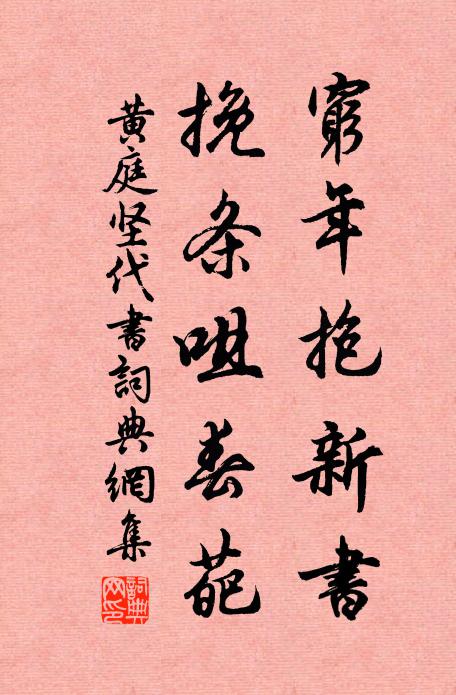 窮年抱新書
挽条咀春葩
黄庭坚代書詞典網集
詞典網印